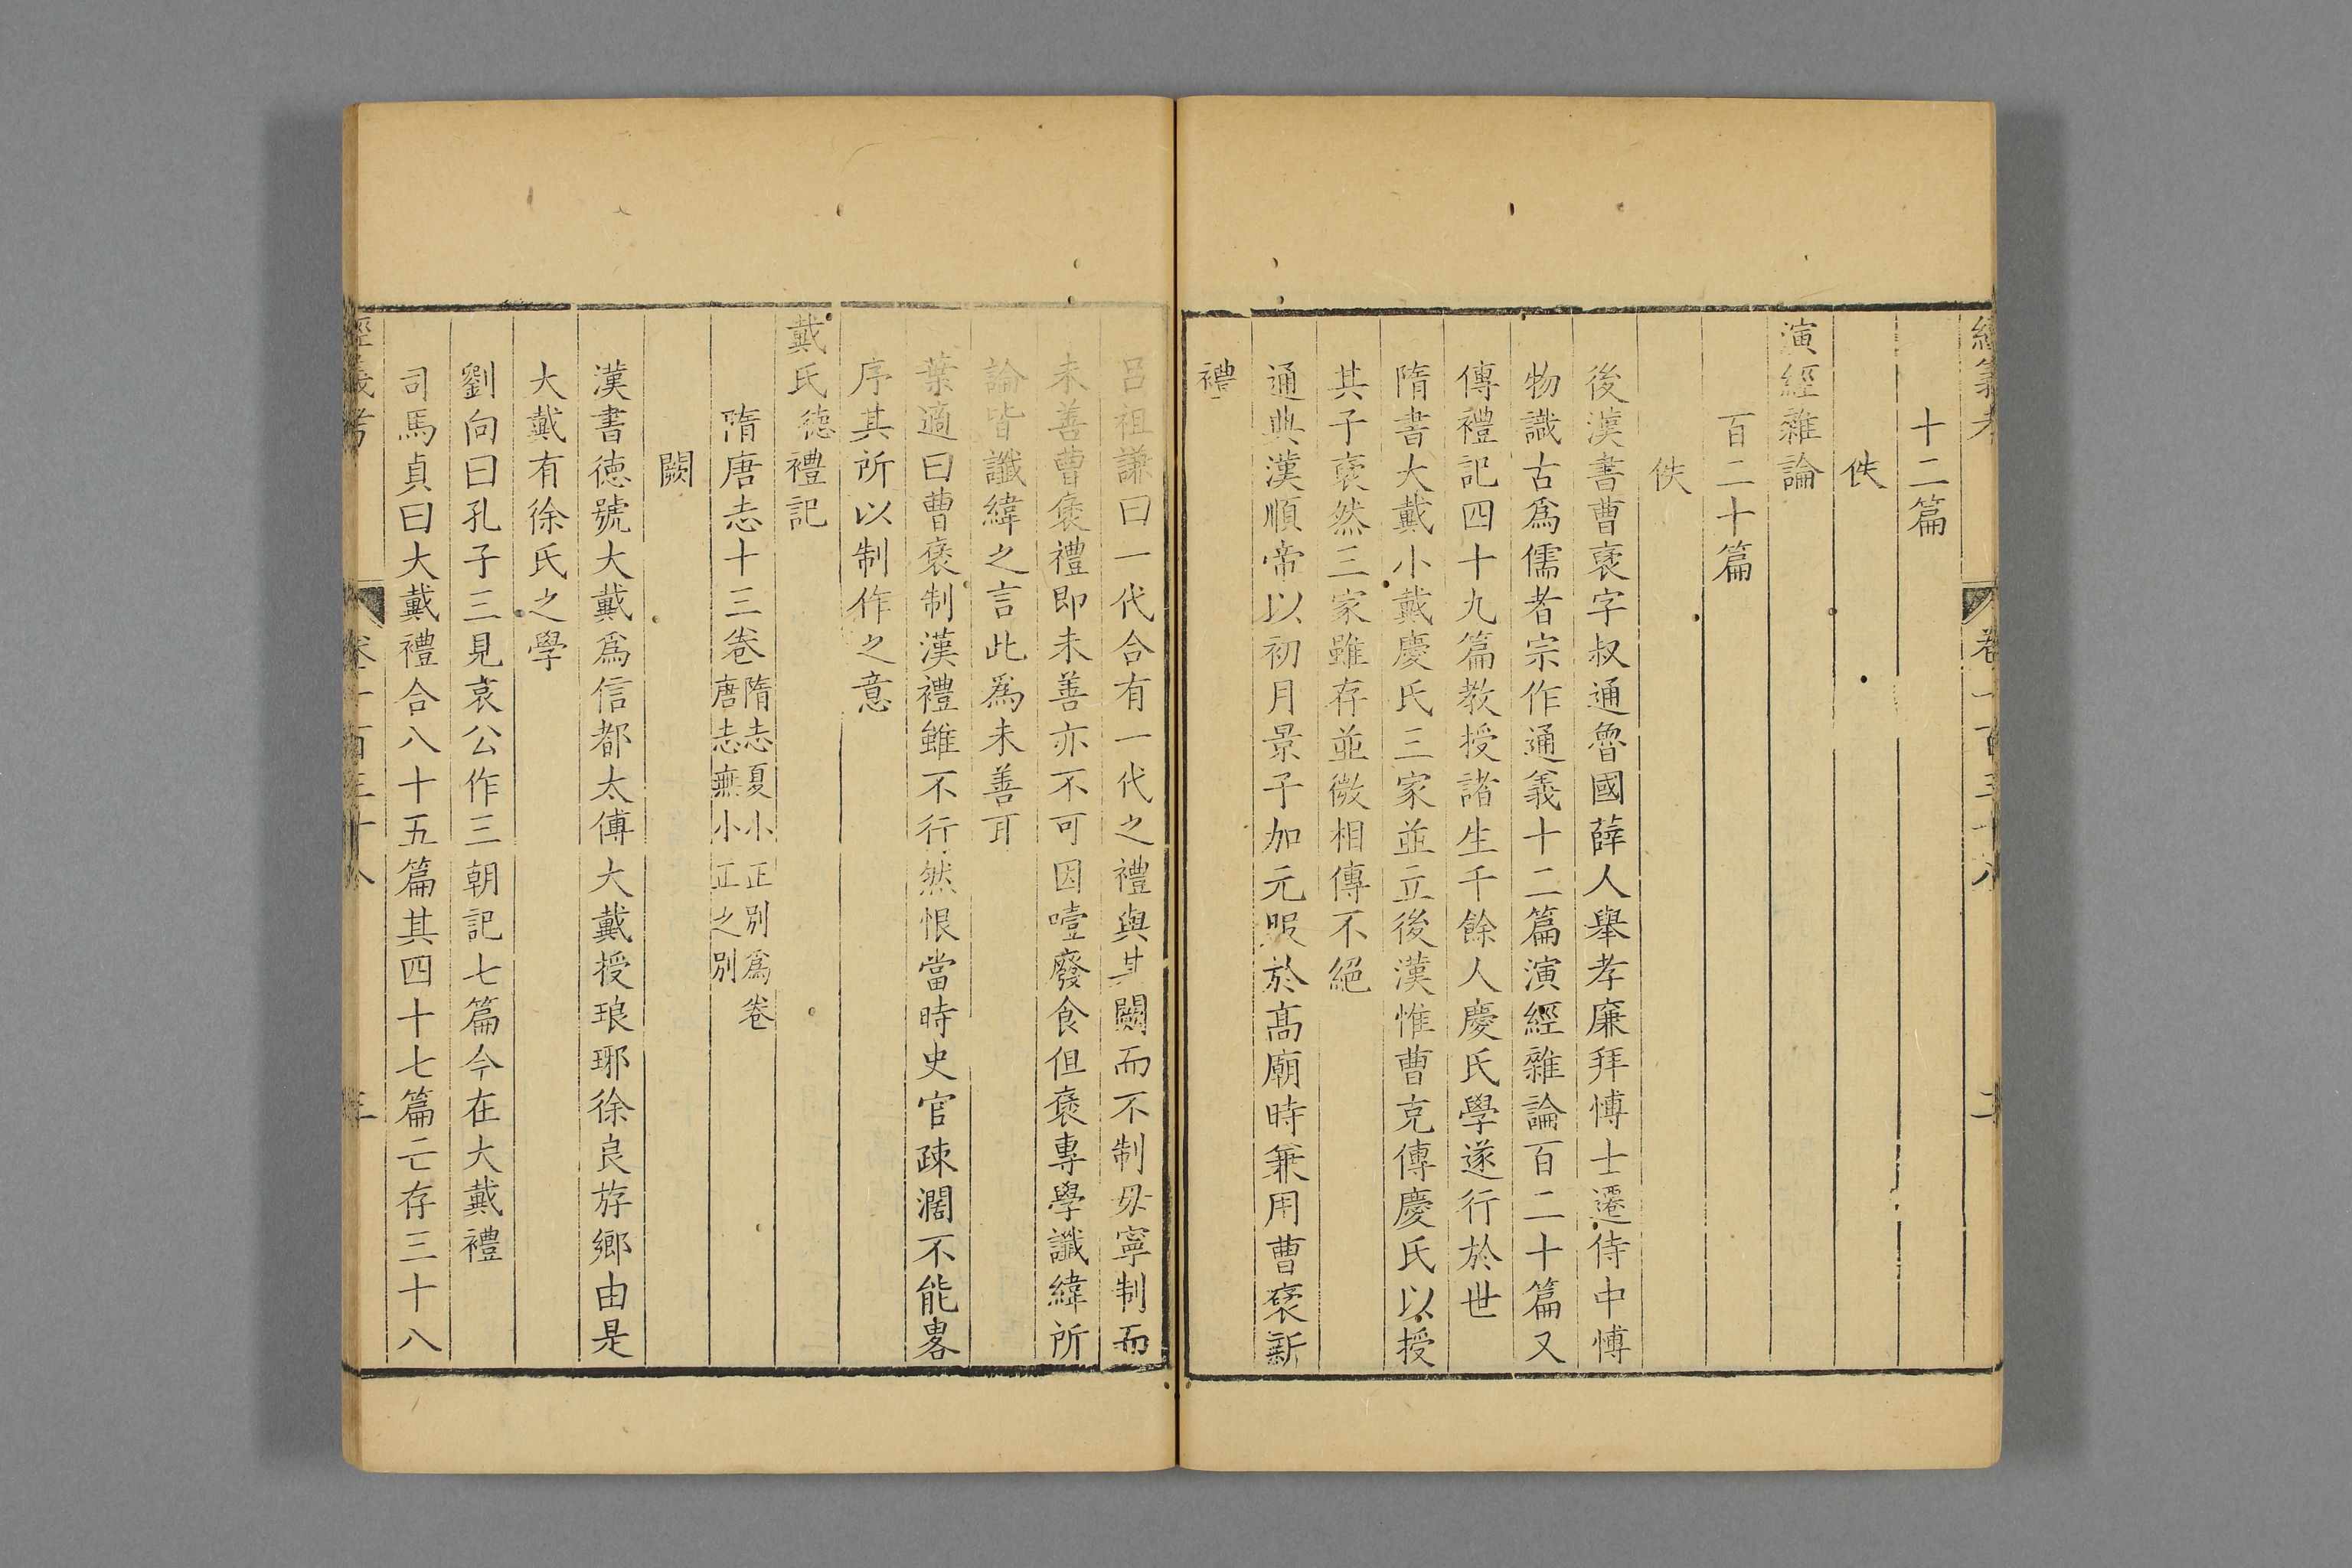 經義考 卷一百三十八 二
十二篇
佚
演經雜論
百二十篇
佚
後漢書曹襃字叔通魯國薛人舉孝廉拜博士遷侍中博
物識古爲儒者宗作通義十二篇演經雜論百二十篇又
傳禮記四十九篇教授諸生千餘人慶氏學遂行於世
隋書大戴小戴慶氏三家並立後漢惟曹充傳慶氏以授
其子襃然三家雖存並微相傳不絕
通典漢順帝以初月景子加元服於髙廟時兼用曹襃新
禮
呂祖謙曰一代合有一代之禮與其闕而不制毋寧制而
未善曹襃禮即未善亦不可因噎廢食但襃專學讖緯所
論皆讖緯之言此爲未善耳
葉適曰曹襃制漢禮雖不行然恨當時史官疎濶不能畧
序其所以制作之意
戴氏德禮記
隋唐志十三卷隋志夏小正別爲卷
唐志無小正之別
闕
漢書德號大戴爲信都太傅大戴授琅邪徐良斿鄉由是
大戴有徐氏之學
劉向曰孔子三見哀公作三朝記七篇今在大戴禮
司馬貞曰大戴禮合八十五篇其四十七篇亡存三十八
經義考 卷一百三十八 三